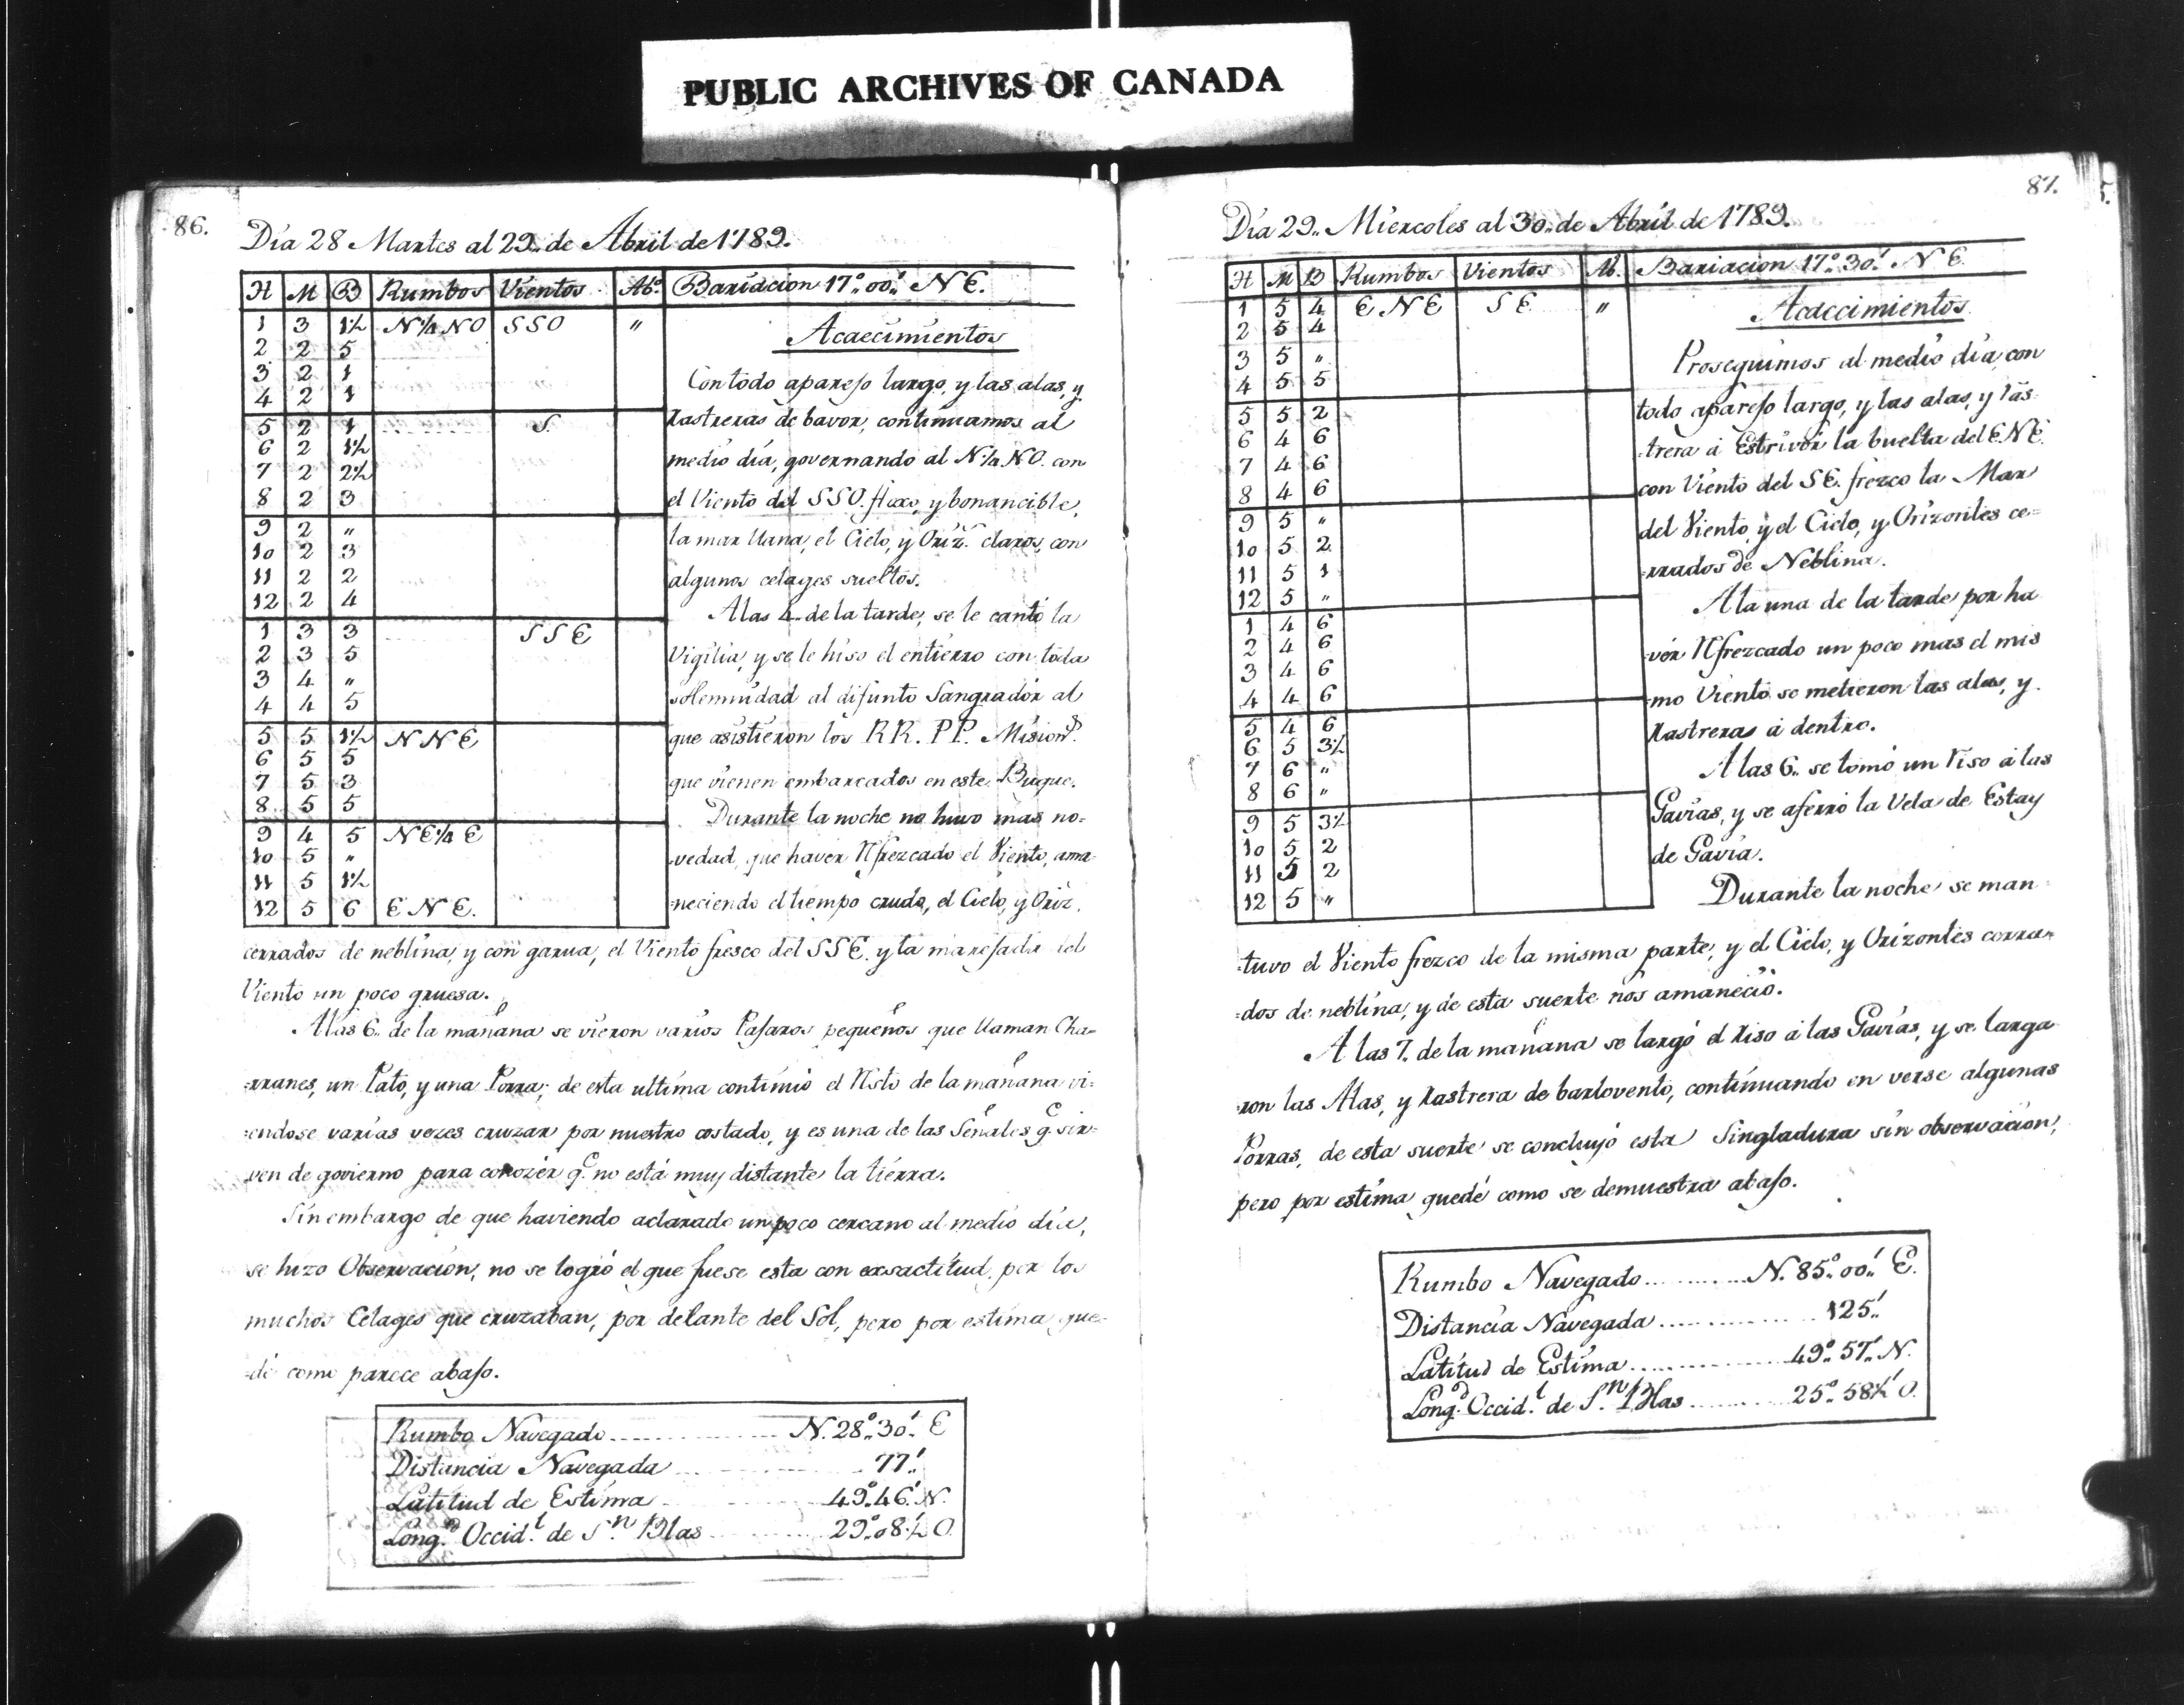 PUBLIC ARCHIVES OF CANADA
86.
Día 28 Martes al 29.. de Abril de 1789.
H M B Rumbos Vientos Abº. Bariacion 17º.. 00.' N E.
1 3 1½ N¼NO SSO "
2 2 5
3 2 1
4 2 1
5 2 1 S.
6 2 1½
7 2 2½
8 2 3
9 2 "
10 2 3
11 2 2
12 2 4
1 3 3 SSE
2 3 5
3 4 "
4 4 5
5 5 1½ NNE
6 5 5
7 5 3
8 5 5
9 4 5 NE¼E
10 5 "
11 5 1½
12 5 6 ENE.
Acaecimientos
Con todo aparejo largo, y las alas, y
Rastreras de bavor, continuamos al
medio día, governando al N¼NO. con
el Viento del SSO. floxo, y bonancible,
la mar llana, el Cielo, y Oriz.s claros, con
algunos celages sueltos.
A las 4.. de la tarde, se le cantó la
Vigilia, y se le hiso el entierro con toda
solemnidad al difunto Sangrador al
que asistieron los RR. PP. Mision.s
que vienen embarcados en este Buque.
Durante la noche no huvo mas no=
=vedad, que haver Rfrezcado el Viento, ama=
=neciendo el tiempo crudo, el Cielo, y Oriz.
cerrados de neblina, y con garua, el Viento fresco del SSE. y la marejada del
Viento un poco gruesa.
A las 6.. de la mañana se vieron varios Pajaros pequeños que llaman Cha=
=rranes, un Pato, y una Porra; de esta ultima continuó el Rsto de la mañana vi=
=endose varias vezes cruzar por nuestro costado, y es una de las Señales q.e sir=
ven de govierno para conozér q.e no está muy distante la tierra.
Sin embargo de que haviendo aclarado un poco cercano al medio día,
se hizo Observacion, no se logró el que fuese esta con exsactitud, por los
muchos Celages que cruzaban, por delante del Sol, pero por estima que=
=dé como parece abajo.
Rumbo Navegado N. 28º.. 30.' E
Distancia Navegada 77.'
Latitud de Estima 49º.. 46.' N.
Long.d Occid.l de S.n Blas 29º.. 08½' O.
87.
Día 29.. Miercoles al 30.. de Abril de 1789.
H M B Rumbos Vientos Ab. Bariacion 17º.. 30.' N E.
1 5 4 ENE SE "
2 5 4
3 5 "
4 5 5
5 5 2
6 4 6
7 4 6
8 4 6
9 5 "
10 5 2
11 5 1
12 5 "
1 4 6
2 4 6
3 4 6
4 4 6
5 4 6
6 5 3½
7 6 "
8 6 "
9 5 3½
10 5 2
11 5 2
12 5 "
Acaecimientos
Proseguimos al medio día, con
todo aparejo largo, y las alas, y Ras=
=trera á Estrivor la buelta del ENE.
con Viento del SE. frezco la Mar
del Viento, y el Cielo, y Orizontes ce=
=rrados de Neblina.
A la una de la tarde por ha
=vér Rfrezcado un poco mas el mis
=mo Viento se metieron las alas, y
Rastreras á dentro.
A las 6.. se tomó un Riso á las
Gavias, y se aferró la Vela de Estay
de Gavia.
Durante la noche se man
=tuvo el Viento frezco de la misma parte, y el Cielo, y Orizontes cerra=
=dos de neblina, y de esta suerte nos amaneció.
A las 7.. de la mañana se largó el Riso á las Gavias, y se larga
=ron las Alas, y Rastrera de barlovento, continuando en verse algunas
Porras, de esta suerte se concluyó esta Singladura sin observacion,
pero por estima quedé como se demuestra abajo.
Rumbo Navegado N. 85º.. 00.' E.
Distancia Navegada 125.'
Latitud de Estima 49º.. 57.' N.
Long.d Occid.l de S.n Blas 25º.. 58½' O.